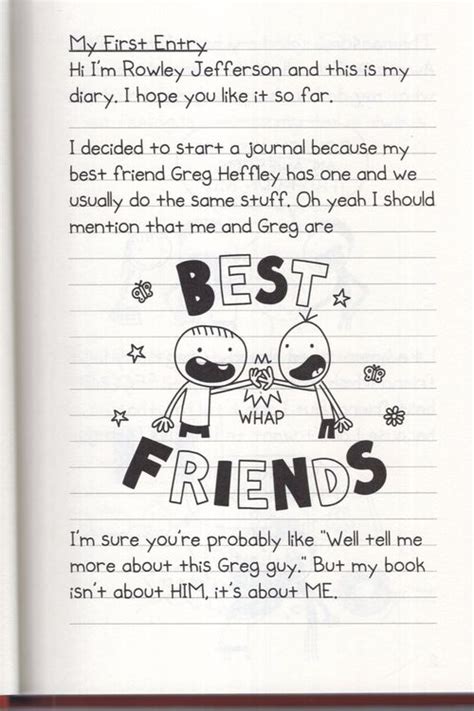 My First Entry
Hi I'm Rowley Jefferson and this is my
diary. I hope you like it so far.
I decided to start a journal because my
best friend Greg Heffley has one and we
usually do the same stuff. Oh yeah I should
mention that me and Greg are
BEST
WHAP
FRIENDS
I'm sure you're probably like "Well tell me
more about this Greg guy." But my book
isn't about HIM, it's about ME.